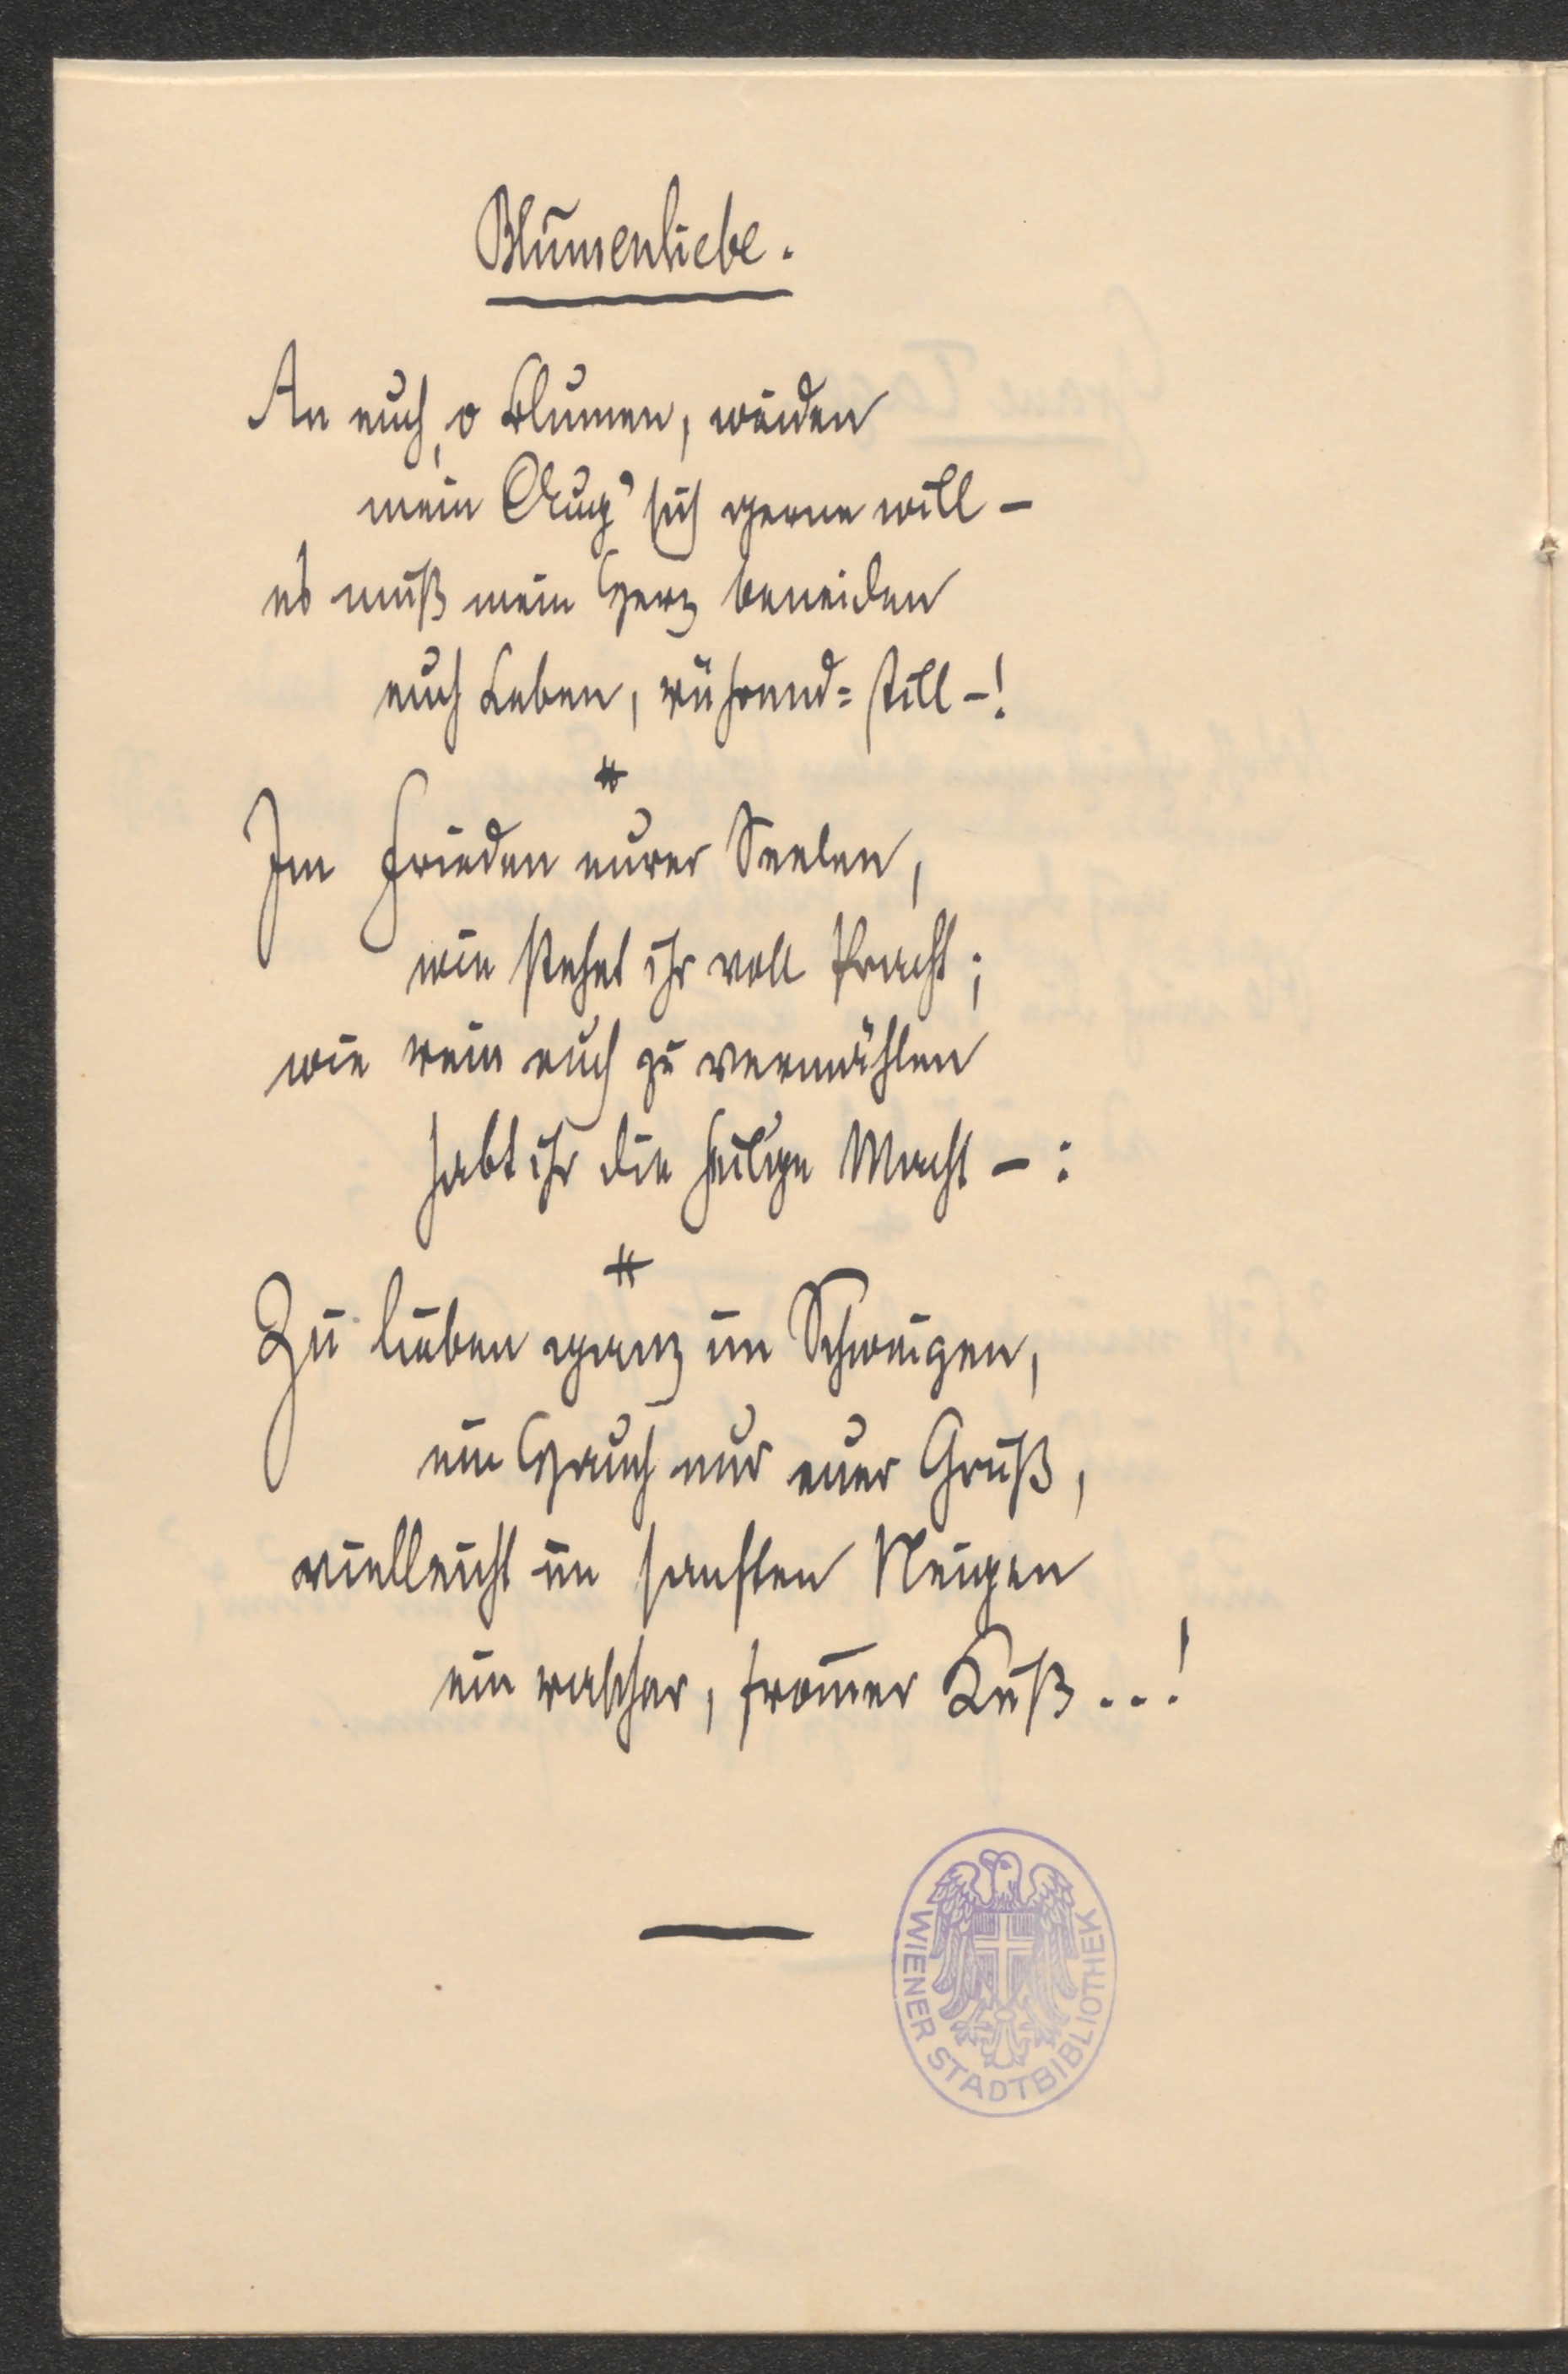 Blumenliebe.
An euch, o Blumen, weiden
mein Aug' sich gerne will –
es muß mein Herz beneiden
euch Leben, rührend= still –!
*
Im Frieden eurer Seelen,
wie stehet ihr voll Pracht;
wie rein euch zu vermählen
habt ihr die heilige Macht – :
*
Zu lieben ganz im Schweigen,
ein Hauch nur euer Gruß,
vielleicht im sanften Neigen
ein rascher, from̄er Kuß...!
WIENER STADTBIBLIOTHEK